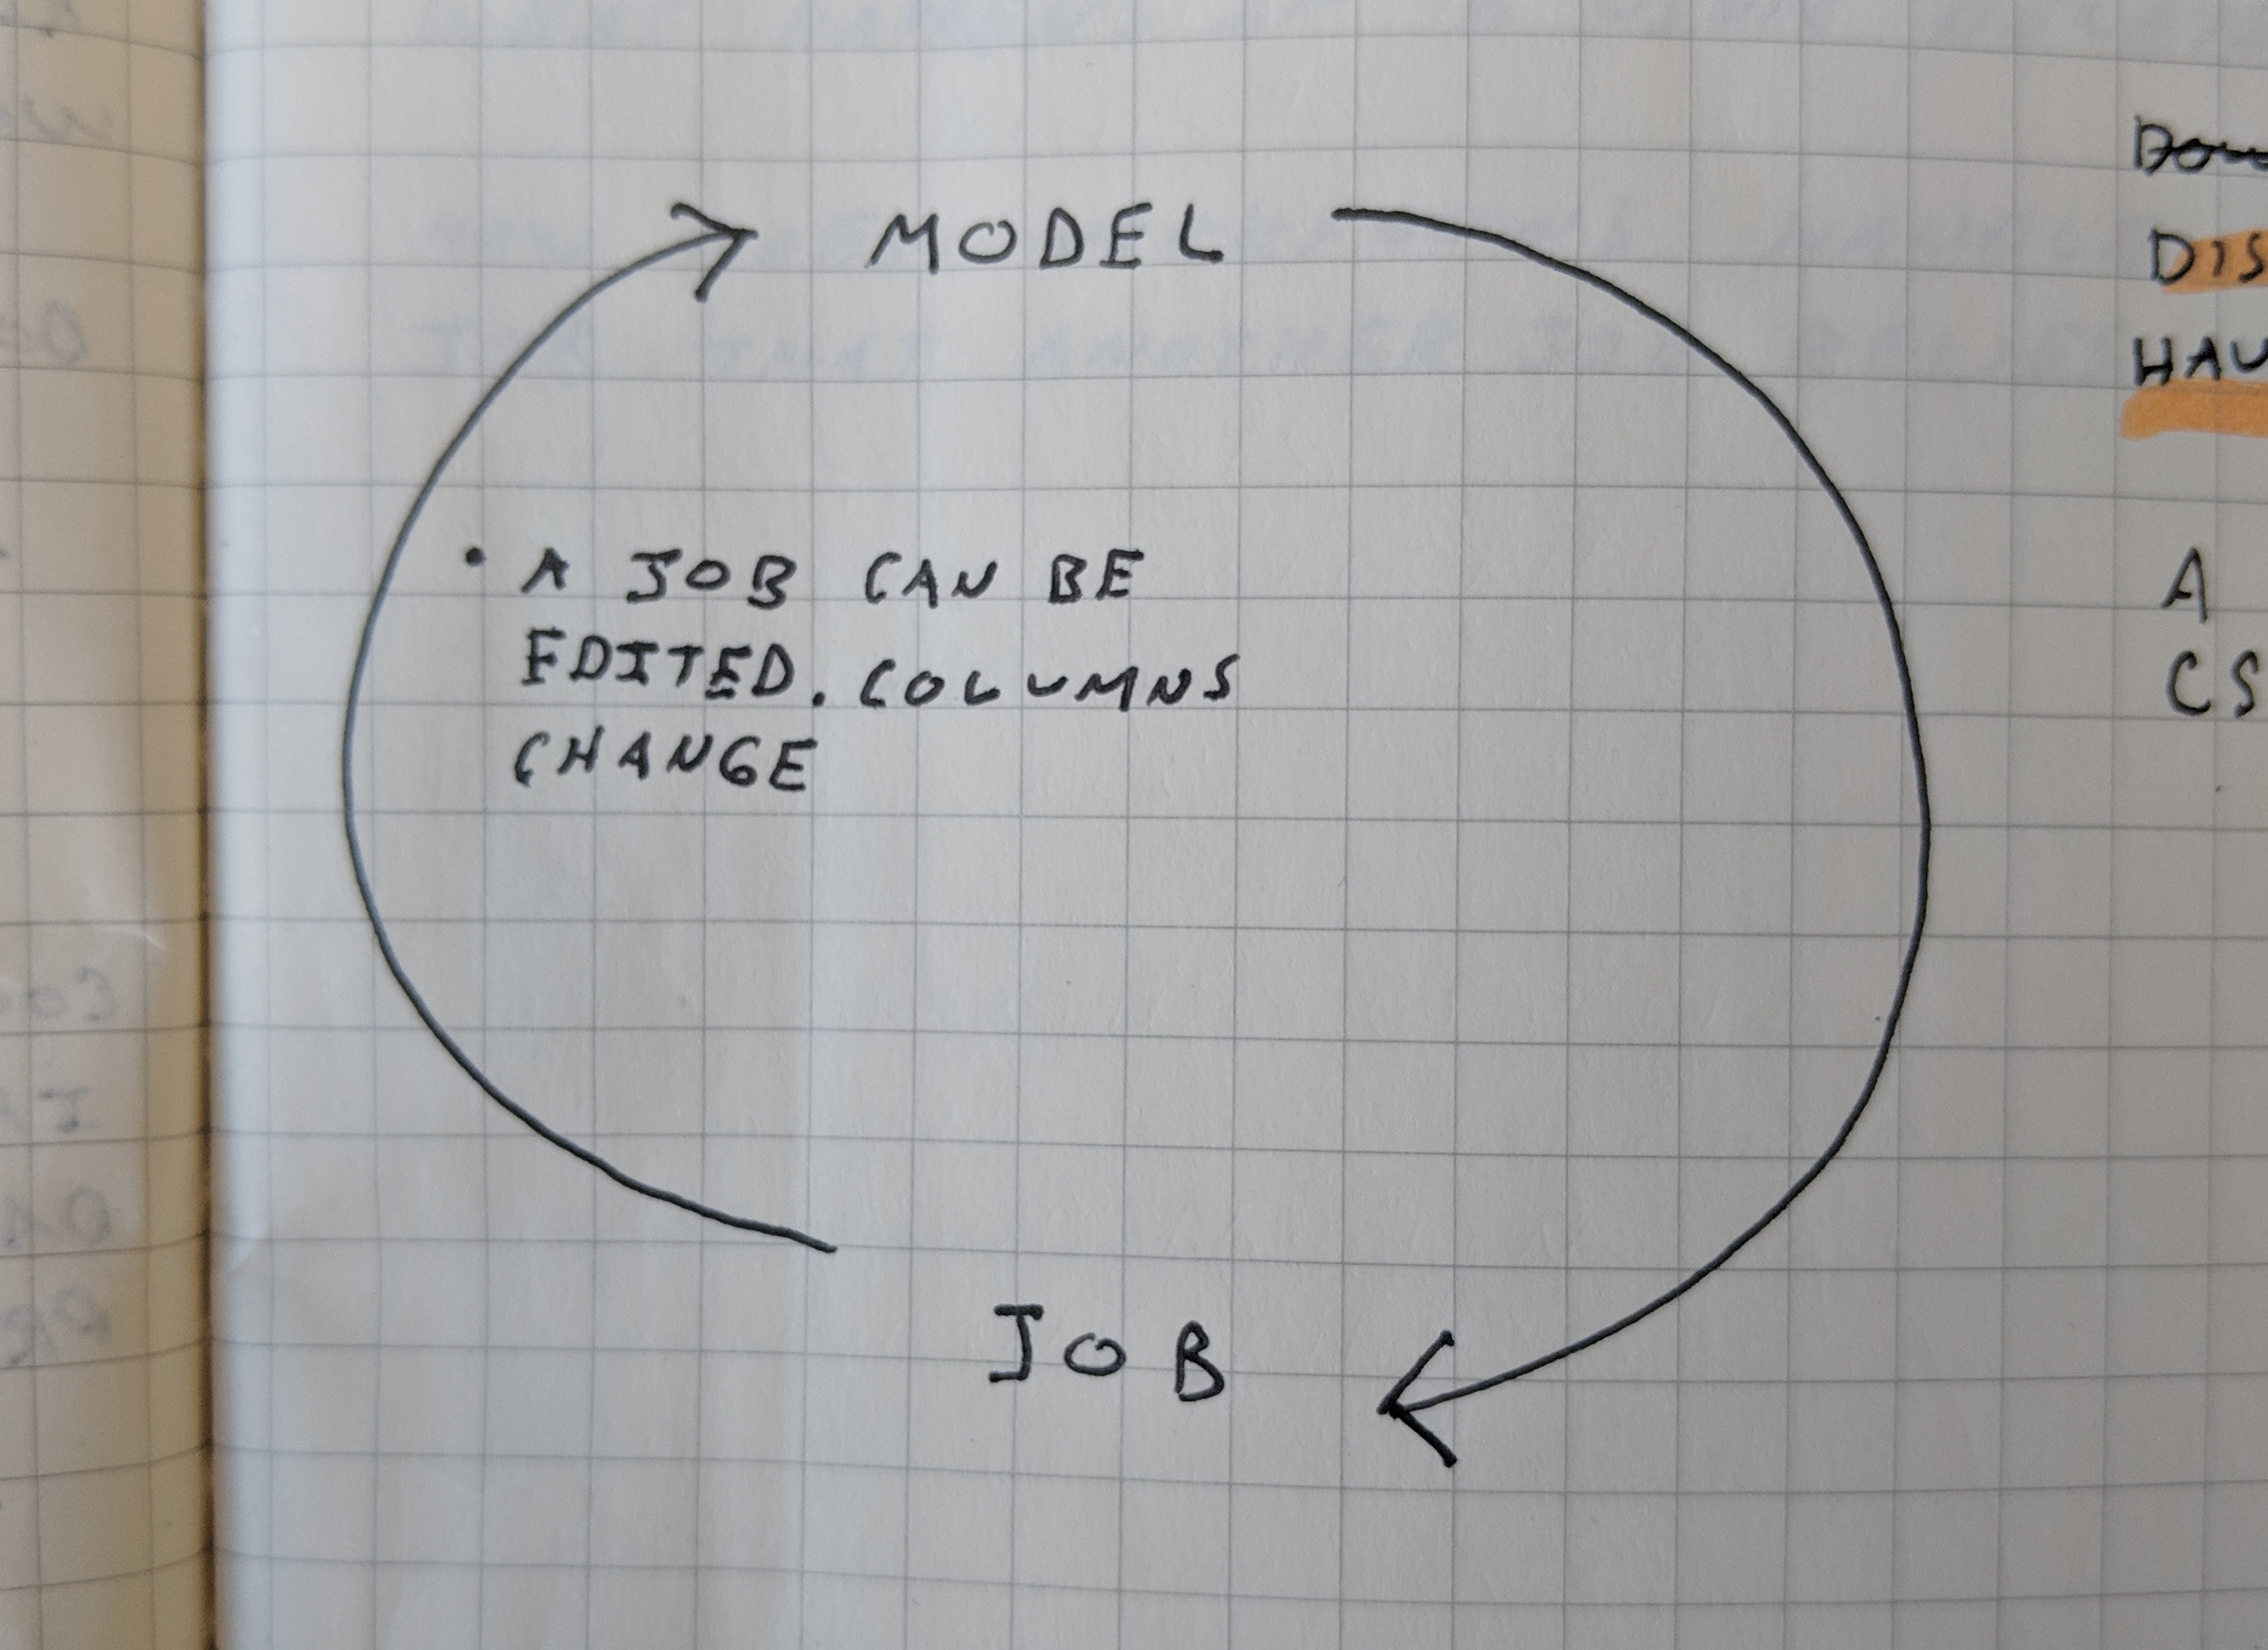 MODEL
• A JOB CAN BE
EDITED. COLUMNS
CHANGE
JOB
DIS
HAV
A
CS